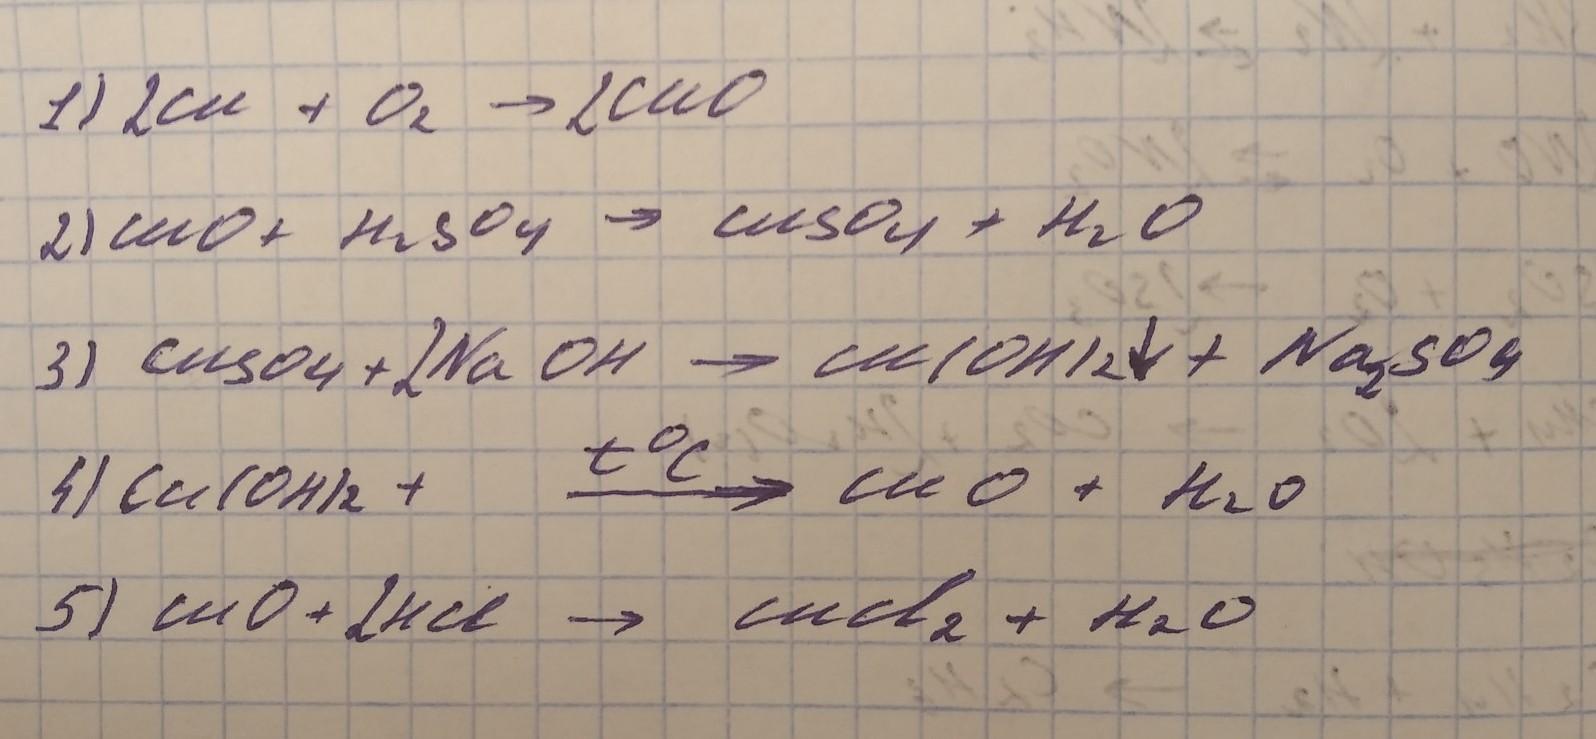 1) 2Cu + O₂ → 2CuO
2) CuO + H₂SO₄ → CuSO₄ + H₂O
3) CuSO₄ + 2NaOH → Cu(OH)₂↓ + Na₂SO₄
4) Cu(OH)₂ + t°C → CuO + H₂O
5) CuO + 2HCl → CuCl₂ + H₂O